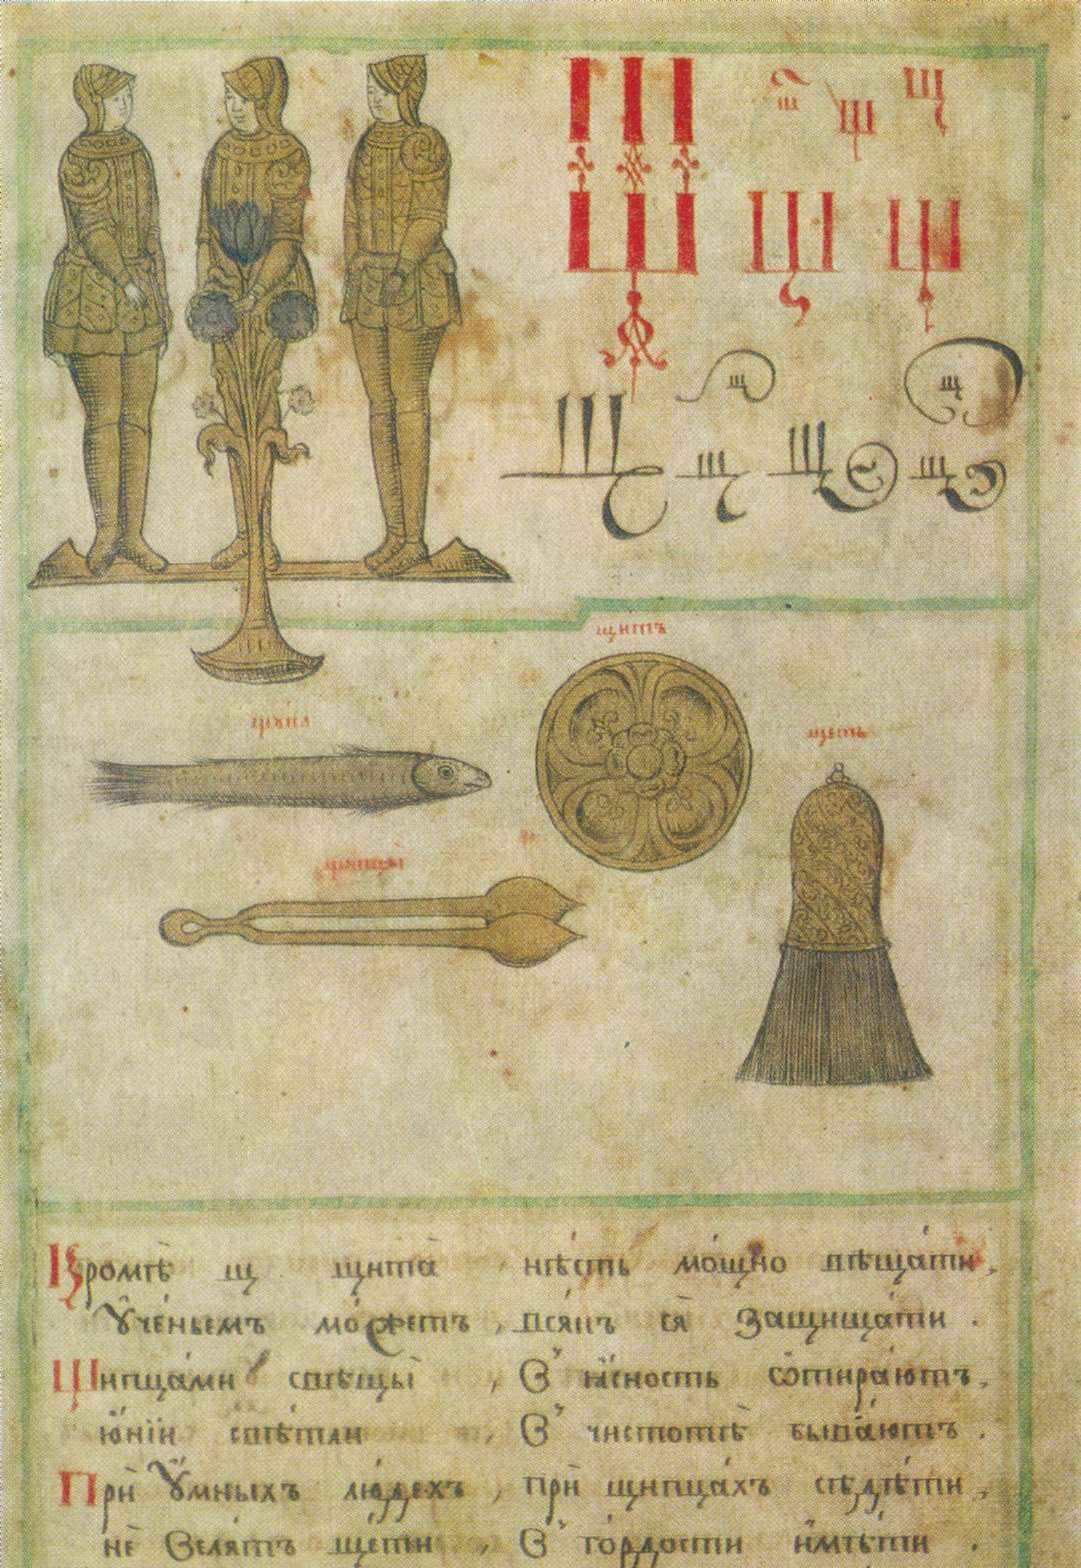 Щ Щ Щ Щ
Щ Щ
Щ Щ
Щ Щ Щ Щ
щитъ
щука
щеть
щипцы
Кромѣ щ щита нѣсть мощно вѣщати,
Ученьемъ можетъ, всякъ ся защищати.
Щипцами свѣщы, в ясность ѿтираютъ,
юнїи свѣтли, в чистотѣ бываютъ.
При умныхъ людехъ, при щипцахъ сѣдѣти,
не велятъ щети, в гордости имѣти